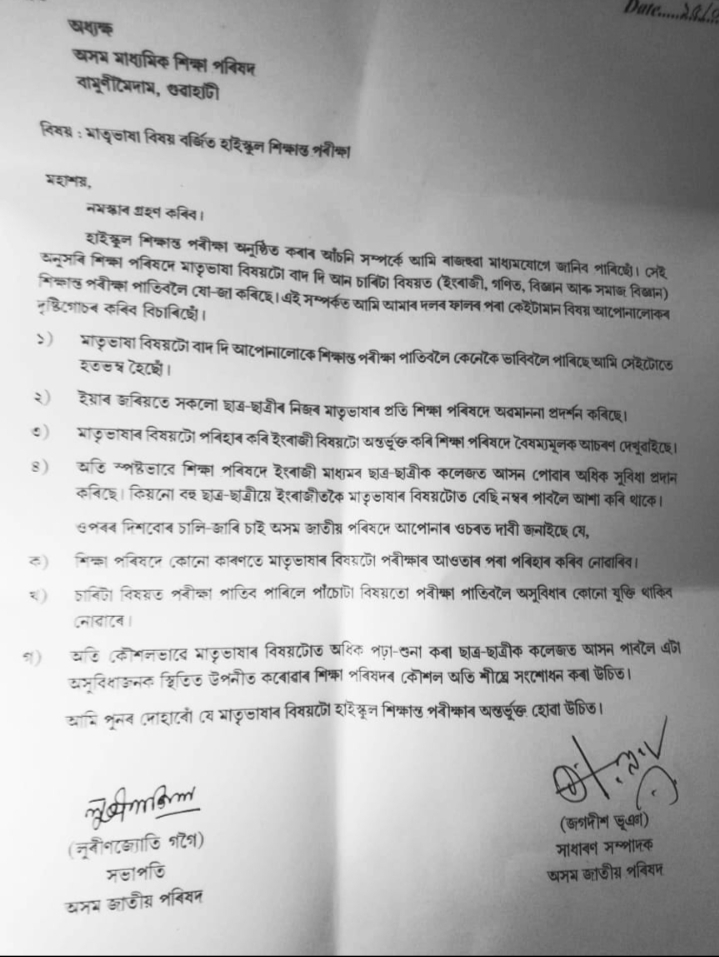 Date.....
অধ্যক্ষ
অসম মাধ্যমিক শিক্ষা পৰিষদ
বামুণীমৈদাম, গুৱাহাটী
বিষয় : মাতৃভাষা বিষয় বৰ্জিত হাইস্কুল শিক্ষান্ত পৰীক্ষা
মহাশয়,
নমস্কাৰ গ্ৰহণ কৰিব।
হাইস্কুল শিক্ষান্ত পৰীক্ষা অনুষ্ঠিত কৰাৰ আঁচনি সম্পৰ্কে আমি ৰাজহুৱা মাধ্যমযোগে জানিব পাৰিছোঁ। সেই
অনুসৰি শিক্ষা পৰিষদে মাতৃভাষা বিষয়টো বাদ দি আন চাৰিটা বিষয়ত (ইংৰাজী, গণিত, বিজ্ঞান আৰু সমাজ বিজ্ঞান)
শিক্ষান্ত পৰীক্ষা পাতিবলৈ যো-জা কৰিছে। এই সম্পৰ্কত আমি আমাৰ দলৰ ফালৰ পৰা কেইটামান বিষয় আপোনালোকৰ
দৃষ্টিগোচৰ কৰিব বিচাৰিছোঁ।
১) মাতৃভাষা বিষয়টো বাদ দি আপোনালোকে শিক্ষান্ত পৰীক্ষা পাতিবলৈ কেনেকৈ ভাবিবলৈ পাৰিছে আমি সেইটোতে
হতভম্ব হৈছোঁ।
২) ইয়াৰ জৰিয়তে সকলো ছাত্ৰ-ছাত্ৰীৰ নিজৰ মাতৃভাষাৰ প্ৰতি শিক্ষা পৰিষদে অৱমাননা প্ৰদৰ্শন কৰিছে।
৩) মাতৃভাষাৰ বিষয়টো পৰিহাৰ কৰি ইংৰাজী বিষয়টো অন্তৰ্ভুক্ত কৰি শিক্ষা পৰিষদে বৈষম্যমূলক আচৰণ দেখুৱাইছে।
৪) অতি স্পষ্টভাৱে শিক্ষা পৰিষদে ইংৰাজী মাধ্যমৰ ছাত্ৰ-ছাত্ৰীক কলেজত আসন পোৱাৰ অধিক সুবিধা প্ৰদান
কৰিছে। কিয়নো বহু ছাত্ৰ-ছাত্ৰীয়ে ইংৰাজীতকৈ মাতৃভাষাৰ বিষয়টোত বেছি নম্বৰ পাবলৈ আশা কৰি থাকে।
ওপৰৰ দিশবোৰ চালি-জাৰি চাই অসম জাতীয় পৰিষদে আপোনাৰ ওচৰত দাবী জনাইছে যে,
ক) শিক্ষা পৰিষদে কোনো কাৰণতে মাতৃভাষাৰ বিষয়টো পৰীক্ষাৰ আওতাৰ পৰা পৰিহাৰ কৰিব নোৱাৰিব।
খ) চাৰিটা বিষয়ত পৰীক্ষা পাতিব পাৰিলে পাঁচোটা বিষয়তো পৰীক্ষা পাতিবলৈ অসুবিধাৰ কোনো যুক্তি থাকিব
নোৱাৰে।
গ) অতি কৌশলভাৱে মাতৃভাষাৰ বিষয়টোত অধিক পঢ়া-শুনা কৰা ছাত্ৰ-ছাত্ৰীক কলেজত আসন পাবলৈ এটা
অসুবিধাজনক স্থিতিত উপনীত কৰোৱাৰ শিক্ষা পৰিষদৰ কৌশল অতি শীঘ্ৰে সংশোধন কৰা উচিত।
আমি পুনৰ দোহাৰোঁ যে মাতৃভাষাৰ বিষয়টো হাইস্কুল শিক্ষান্ত পৰীক্ষাৰ অন্তৰ্ভুক্ত হোৱা উচিত।
(লুৰীণজ্যোতি গগৈ)
সভাপতি
অসম জাতীয় পৰিষদ
(জগদীশ ভূঞা)
সাধাৰণ সম্পাদক
অসম জাতীয় পৰিষদ